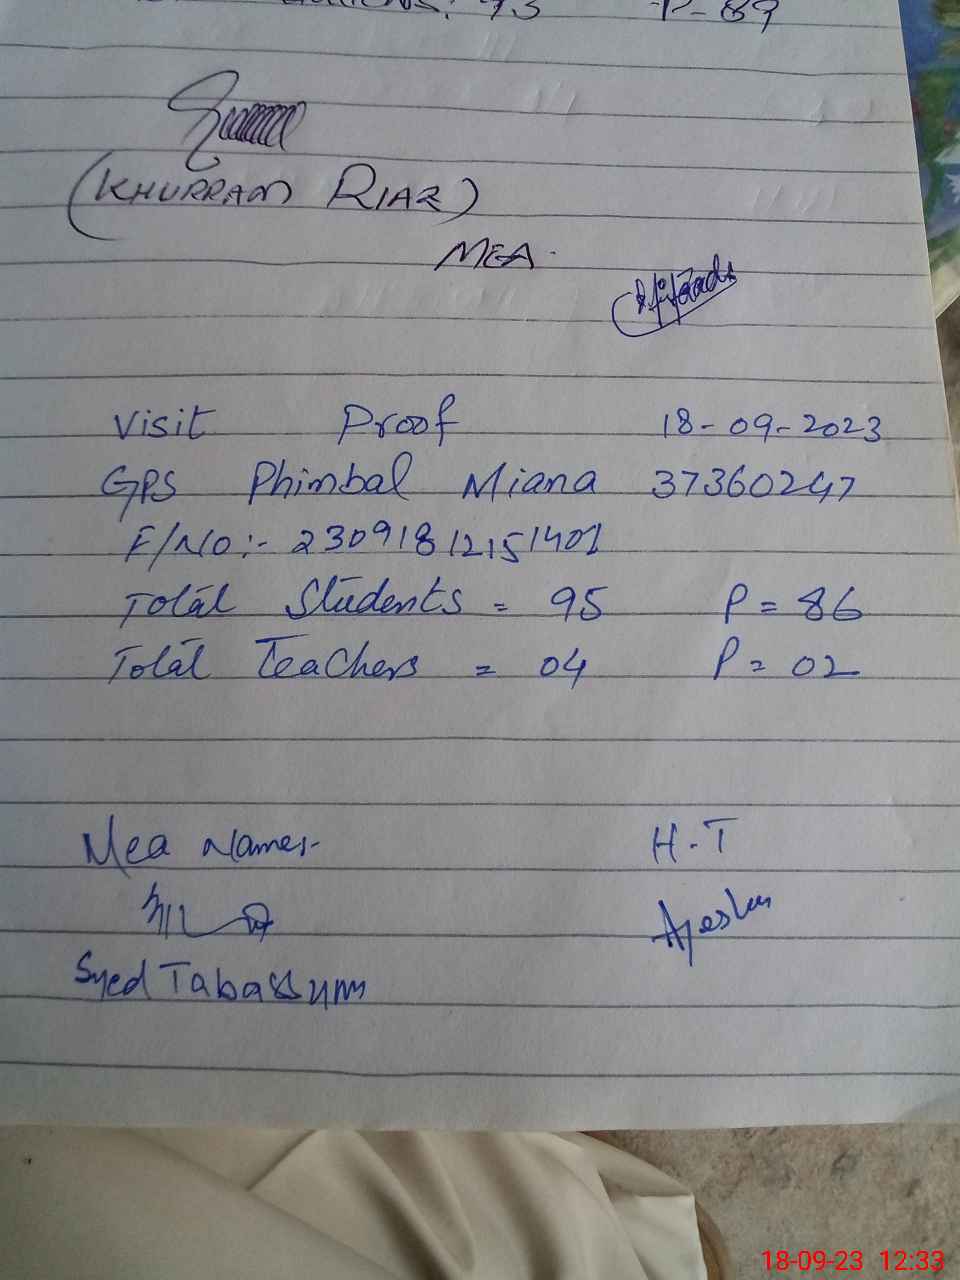 P-89
(KHURRAM RIAZ)
MEA.
Visit Proof 18-09-2023
GPS Phimbal Miana 37360247
F/No:- 23091812151401
Total Students = 95 P = 86
Total Teachers = 04 P = 02
Mea Name:- H.T
Ayesha
Syed Tabassum
18-09-23 12:33